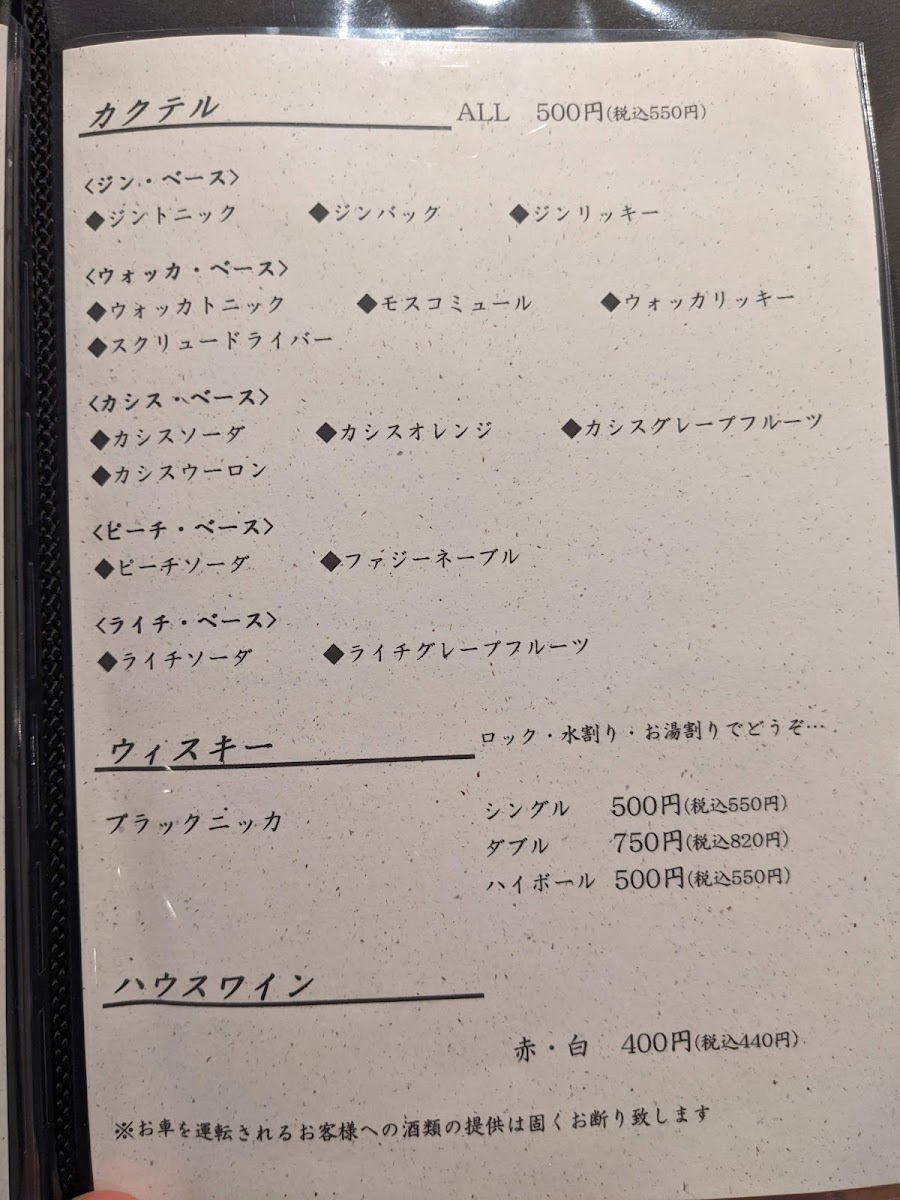 カクテル ALL 500円(税込550円)
〈ジン・ベース〉
◆ジントニック ◆ジンバック ◆ジンリッキー
〈ウォッカ・ベース〉
◆ウォッカトニック ◆モスコミュール ◆ウォッカリッキー
◆スクリュードライバー
〈カシス・ベース〉
◆カシスソーダ ◆カシスオレンジ ◆カシスグレープフルーツ
◆カシスウーロン
〈ピーチ・ベース〉
◆ピーチソーダ ◆ファジーネーブル
〈ライチ・ベース〉
◆ライチソーダ ◆ライチグレープフルーツ
ウィスキー ロック・水割り・お湯割りでどうぞ…
ブラックニッカ シングル 500円(税込550円)
ダブル 750円(税込820円)
ハイボール 500円(税込550円)
ハウスワイン
赤・白 400円(税込440円)
※お車を運転されるお客様への酒類の提供は固くお断り致します